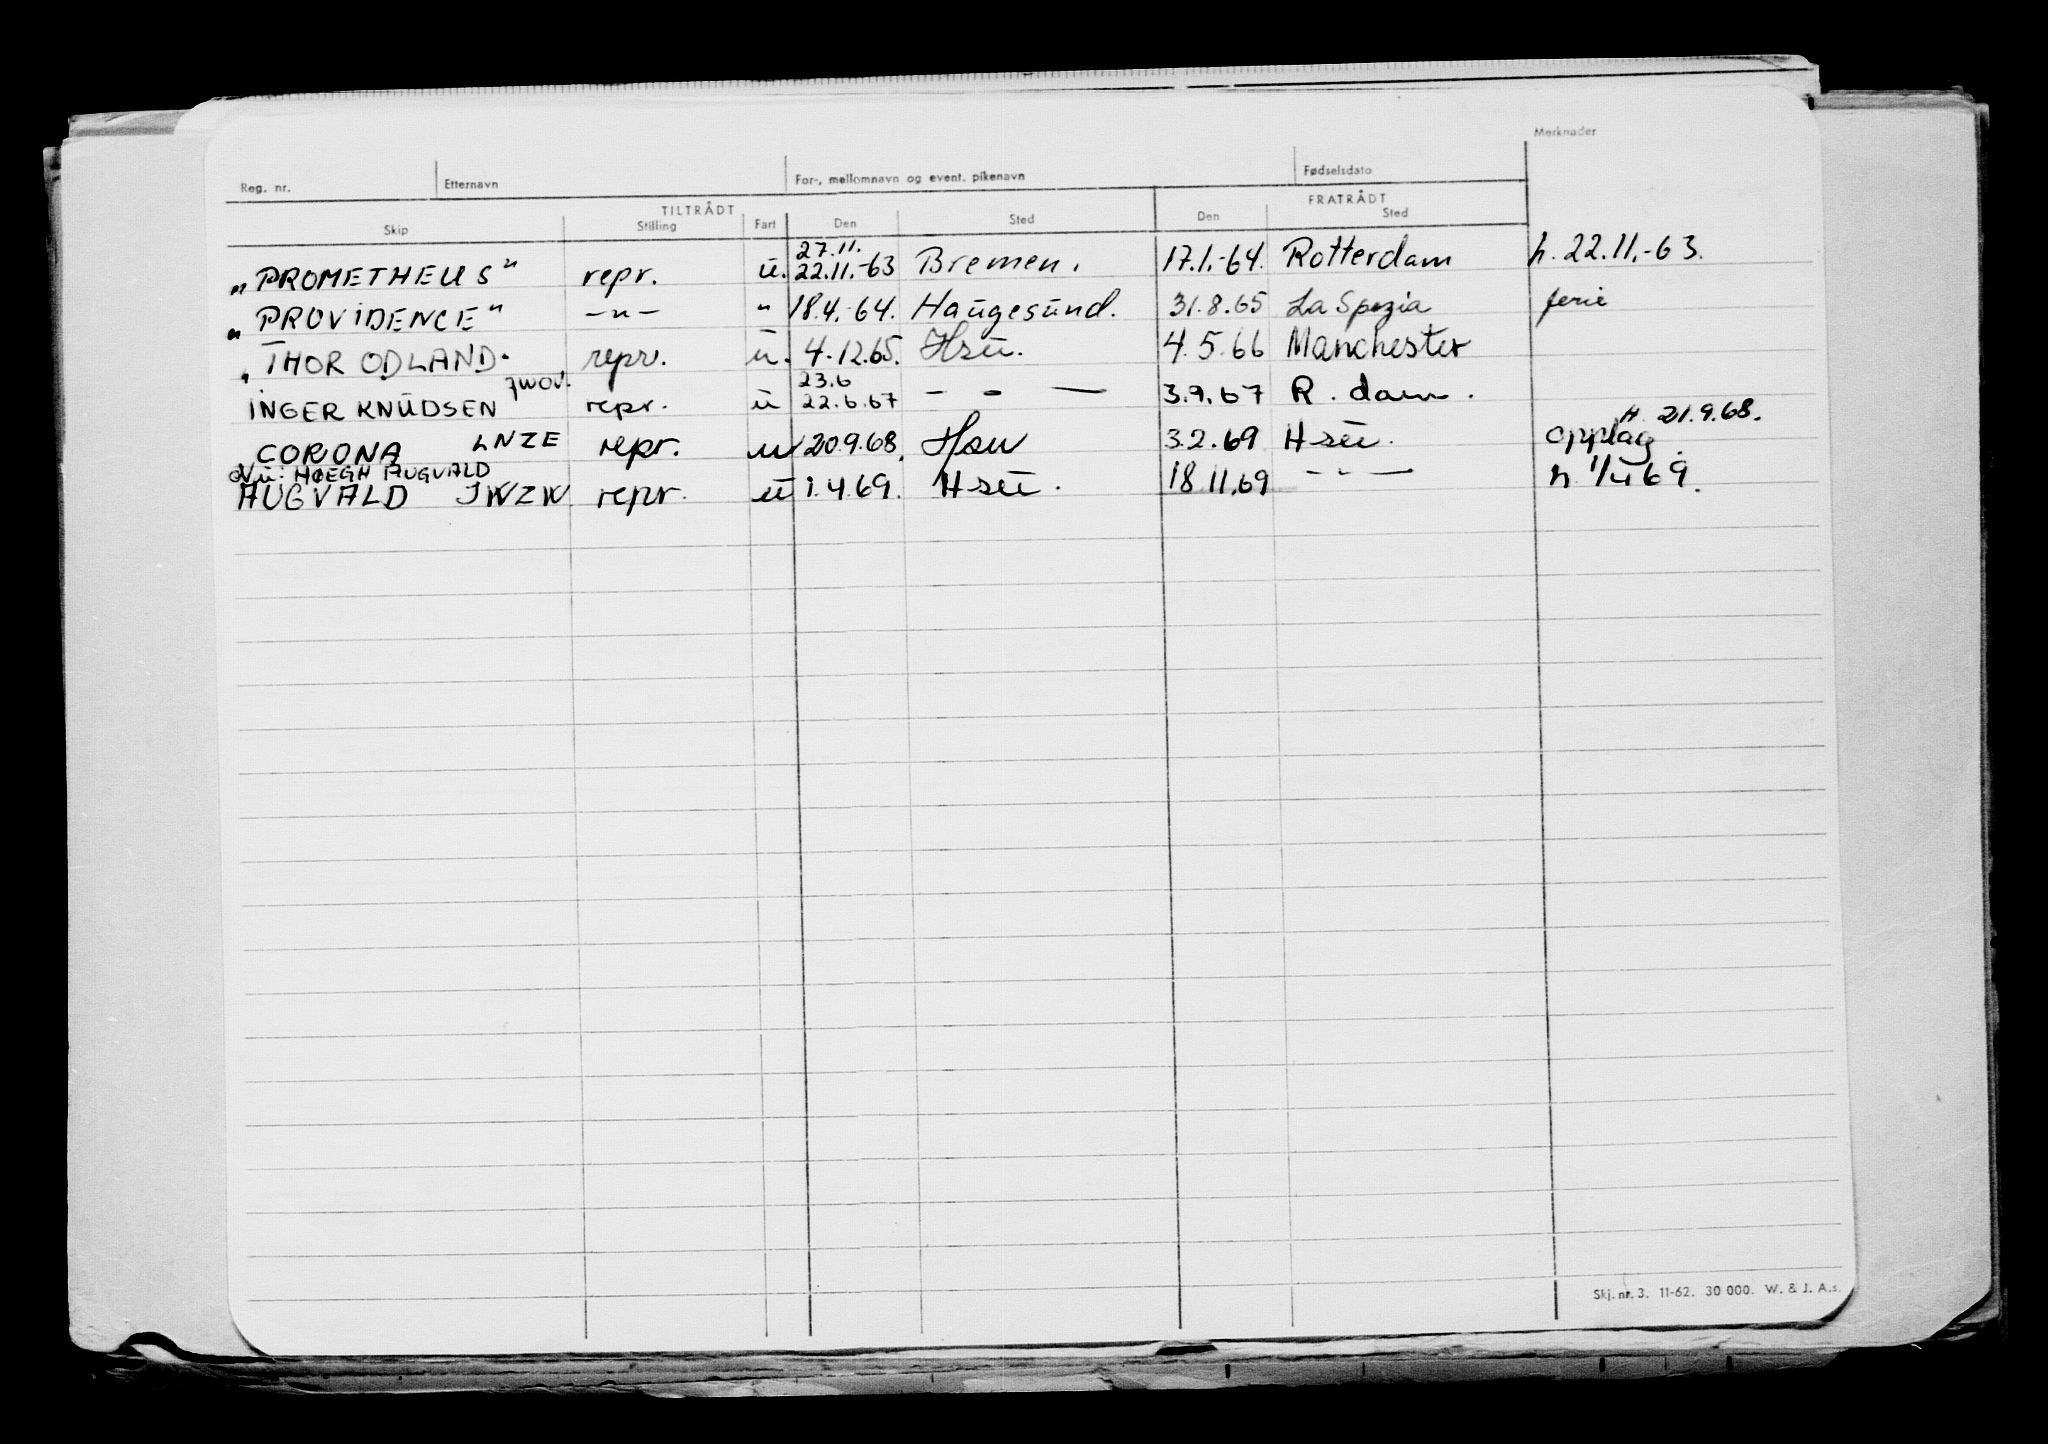 Merknader
Reg. nr. Etternavn For-, mellomnavn og event. pikenavn Fødselsdato
TILTRÅDT FRATRÅDT
Skip Stilling Fart Den Sted Den Sted
27.11.
„PROMETHEUS" repr. ū. 22.11.-63 Bremen. 17.1.-64. Rotterdam h. 22.11.-63.
„PROVIDENCE" —„— " 18.4.-64. Haugesund. 31.8.65 La Spezia ferie
„THOR ODLAND. repr. ū. 4.12.65. Hsū. 4.5.66 Manchester
JWOV. 23.6
INGER KNŪDSEN repr. ū 22.6.67 — - — 3.9.67 R. dam.
H. 21.9.68.
CORONA LNZE repr. u 20.9.68. Hsu 3.2.69 Hsū. opplag.
Nū: HØEGH AUGVALD
AUGVALD JWZW. repr. ū 1.4.69. Hsū. 18.11.69 — - — h 1/4 69.
Skj. nr. 3. 11-62. 30 000. W. & J. A.s.